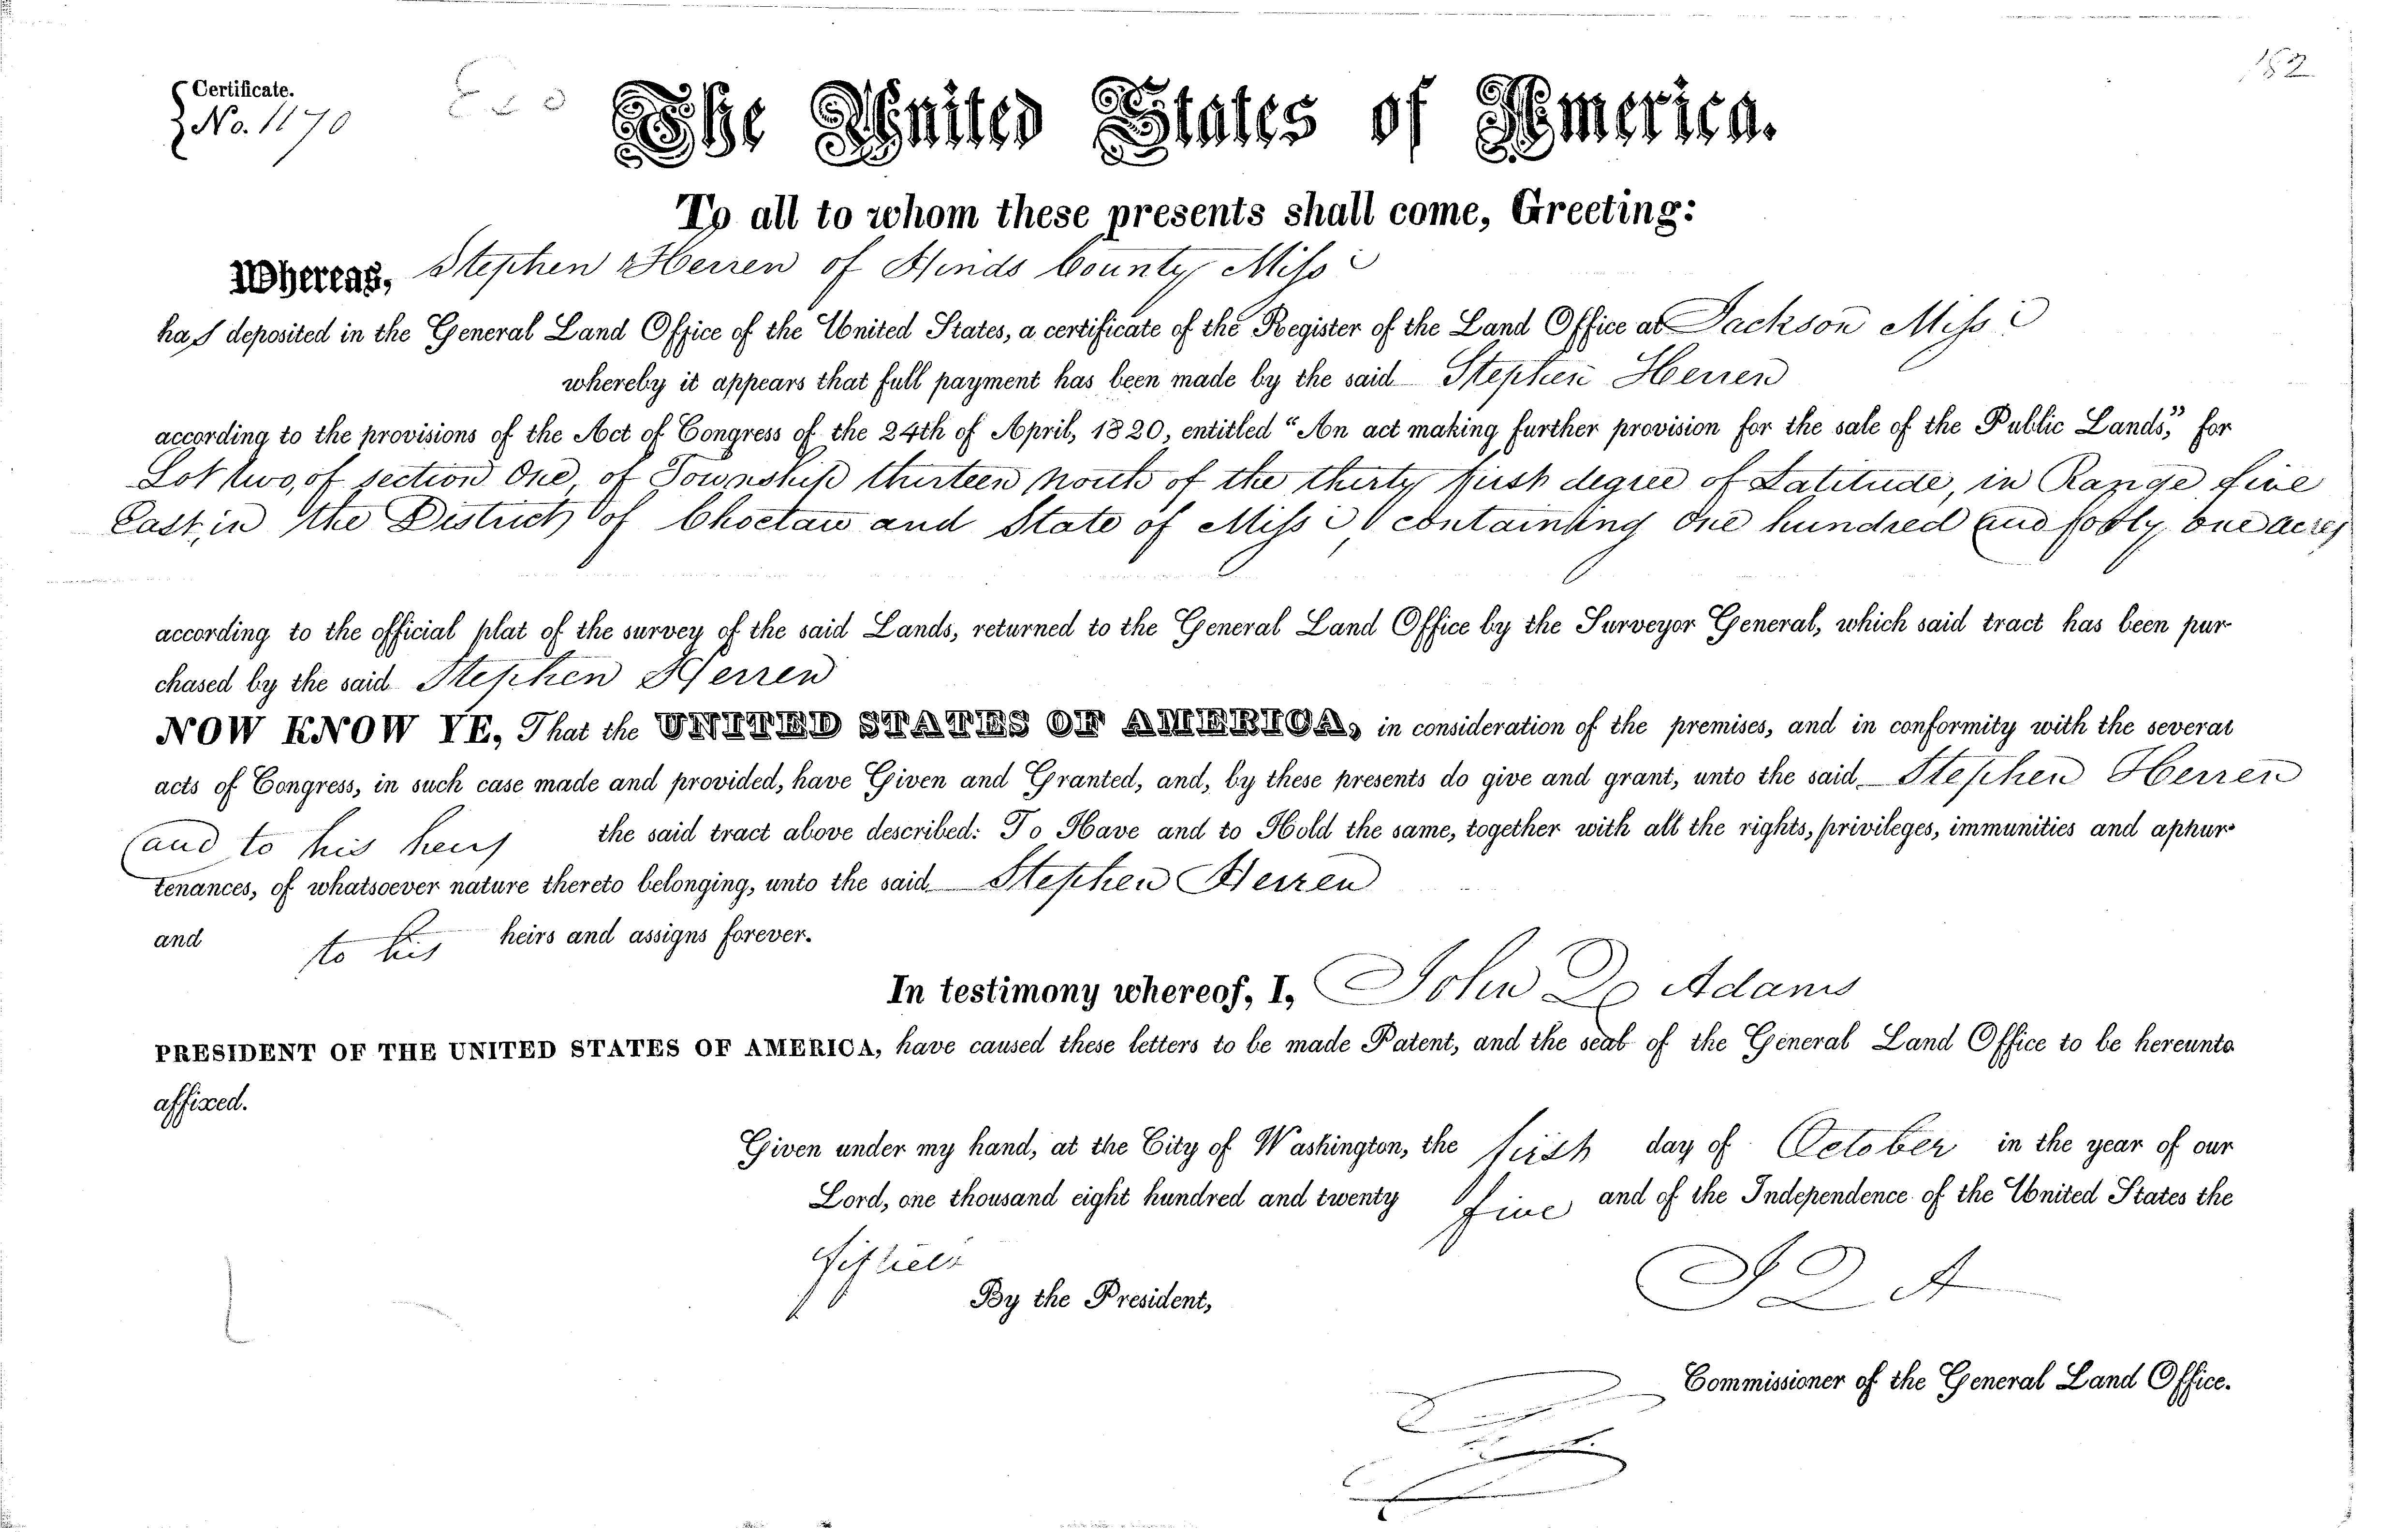 Certificate.
No. 1170
152
The United States of America.
To all to whom these presents shall come, Greeting:
Whereas, Stephen Herren of Hinds County Missi
has deposited in the General Land Office of the United States, a certificate of the Register of the Land Office at Jackson Missi
whereby it appears that full payment has been made by the said Stephen Herren
according to the provisions of the Act of Congress of the 24th of April, 1820, entitled "An act making further provision for the sale of the Public Lands," for
Lot two, of section One, of Township thirteen North of the thirty first degree of Latitude, in Range five
East, in the District of Choctaw and State of Missi, containing One hundred and forty one acres
according to the official plat of the survey of the said Lands, returned to the General Land Office by the Surveyor General, which said tract has been pur-
chased by the said Stephen Herren
NOW KNOW YE, That the UNITED STATES OF AMERICA, in consideration of the premises, and in conformity with the several
acts of Congress, in such case made and provided, have Given and Granted, and, by these presents do give and grant, unto the said Stephen Herren
and to his heirs the said tract above described: To Have and to Hold the same, together with all the rights, privileges, immunities and appur-
tenances, of whatsoever nature thereto belonging, unto the said Stephen Herren
and to his heirs and assigns forever.
In testimony whereof, I, John Q Adams
PRESIDENT OF THE UNITED STATES OF AMERICA, have caused these letters to be made Patent, and the seal of the General Land Office to be hereunto
affixed.
Given under my hand, at the City of Washington, the first day of October in the year of our
Lord, one thousand eight hundred and twenty five and of the Independence of the United States the
fiftieth
By the President, J Q A
Commissioner of the General Land Office.